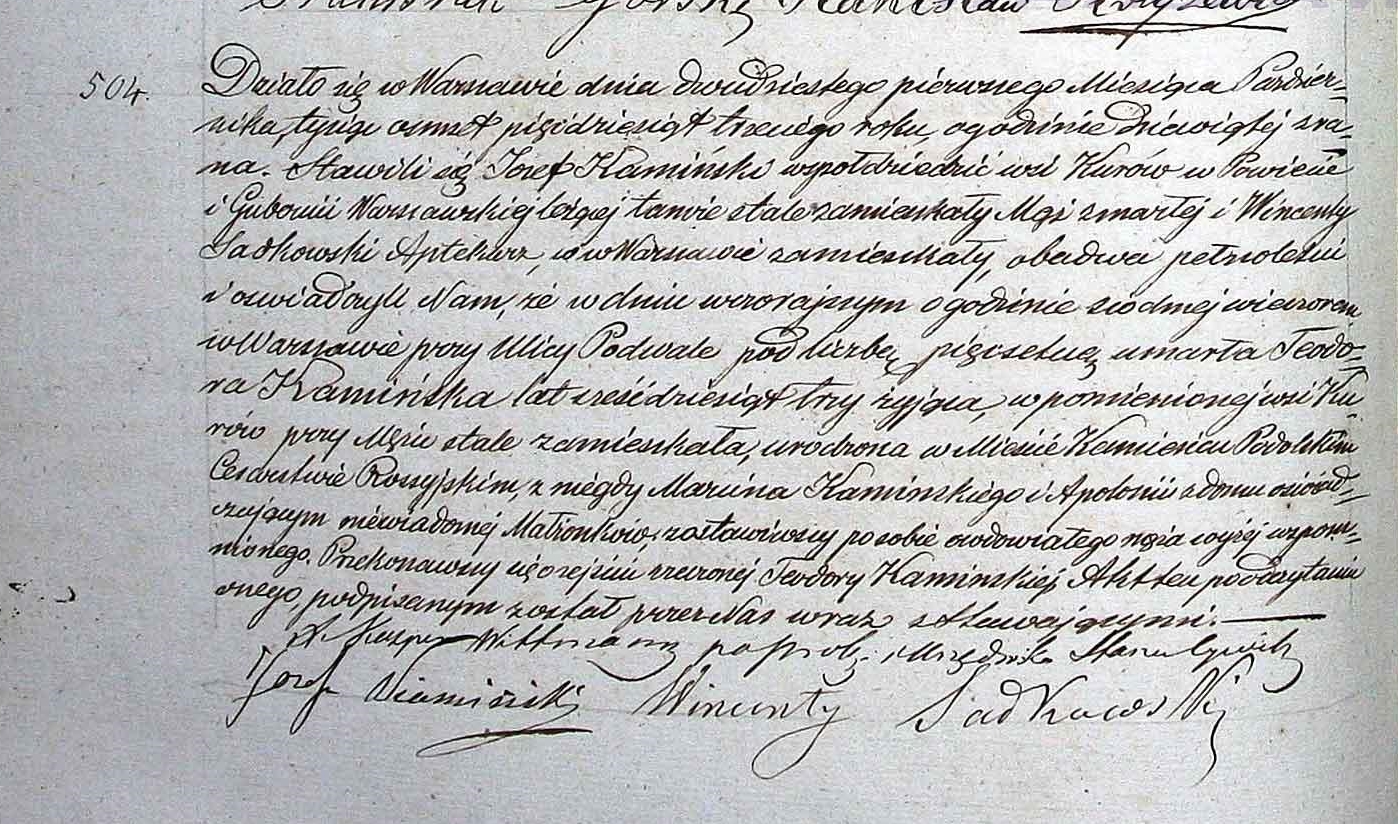 Stanisław
504.
Działo się w Warszawie dnia dwudziestego pierwszego Miesiąca Paździer=
nika, tysiąc osmset pięćdziesiąt trzeciego roku, o godzinie dziewiątej zra=
na. Stawili się Jozef Kamiński wspołdziedzic wsi Kurów w Powiecie
i Gubernii Warszawskiej leżącej tamże stale zamieszkały Mąż zmarłej i Wincenty
Sadkowski Aptekarz, w Warszawie zamieszkały, obadwa pełnoletni
i oswiadczyli Nam, że w dniu wczorajszym o godzinie siodmej wieczorem
w Warszawie przy Ulicy Podwale pod liczbą pięcsetną umarła Teodo=
ra Kamińska lat sześćdziesiąt trzy żyjąca, w pomienionej wsi Ku
rów przy Mężu stale zamieszkała, urodzona w Mieście Kamieńcu Podolskim
Cesarstwie Rossyjskim, z niegdy Marcina Kamińskiego i Apolonii z domu oświad=
czającym niewiadomej Małżonków, zostawiwszy po sobie owdowiałego męża wyżej wspom=
nionego. Przekonawszy się o zejściu rzeczonej Teodory Kamińskiej, Akt ten po odczytaniu
onego, podpisanym został przez Nas wraz z stawającymi. —
X Kasper Wittmann
Jozef Kamiński Wincenty Sadkowski